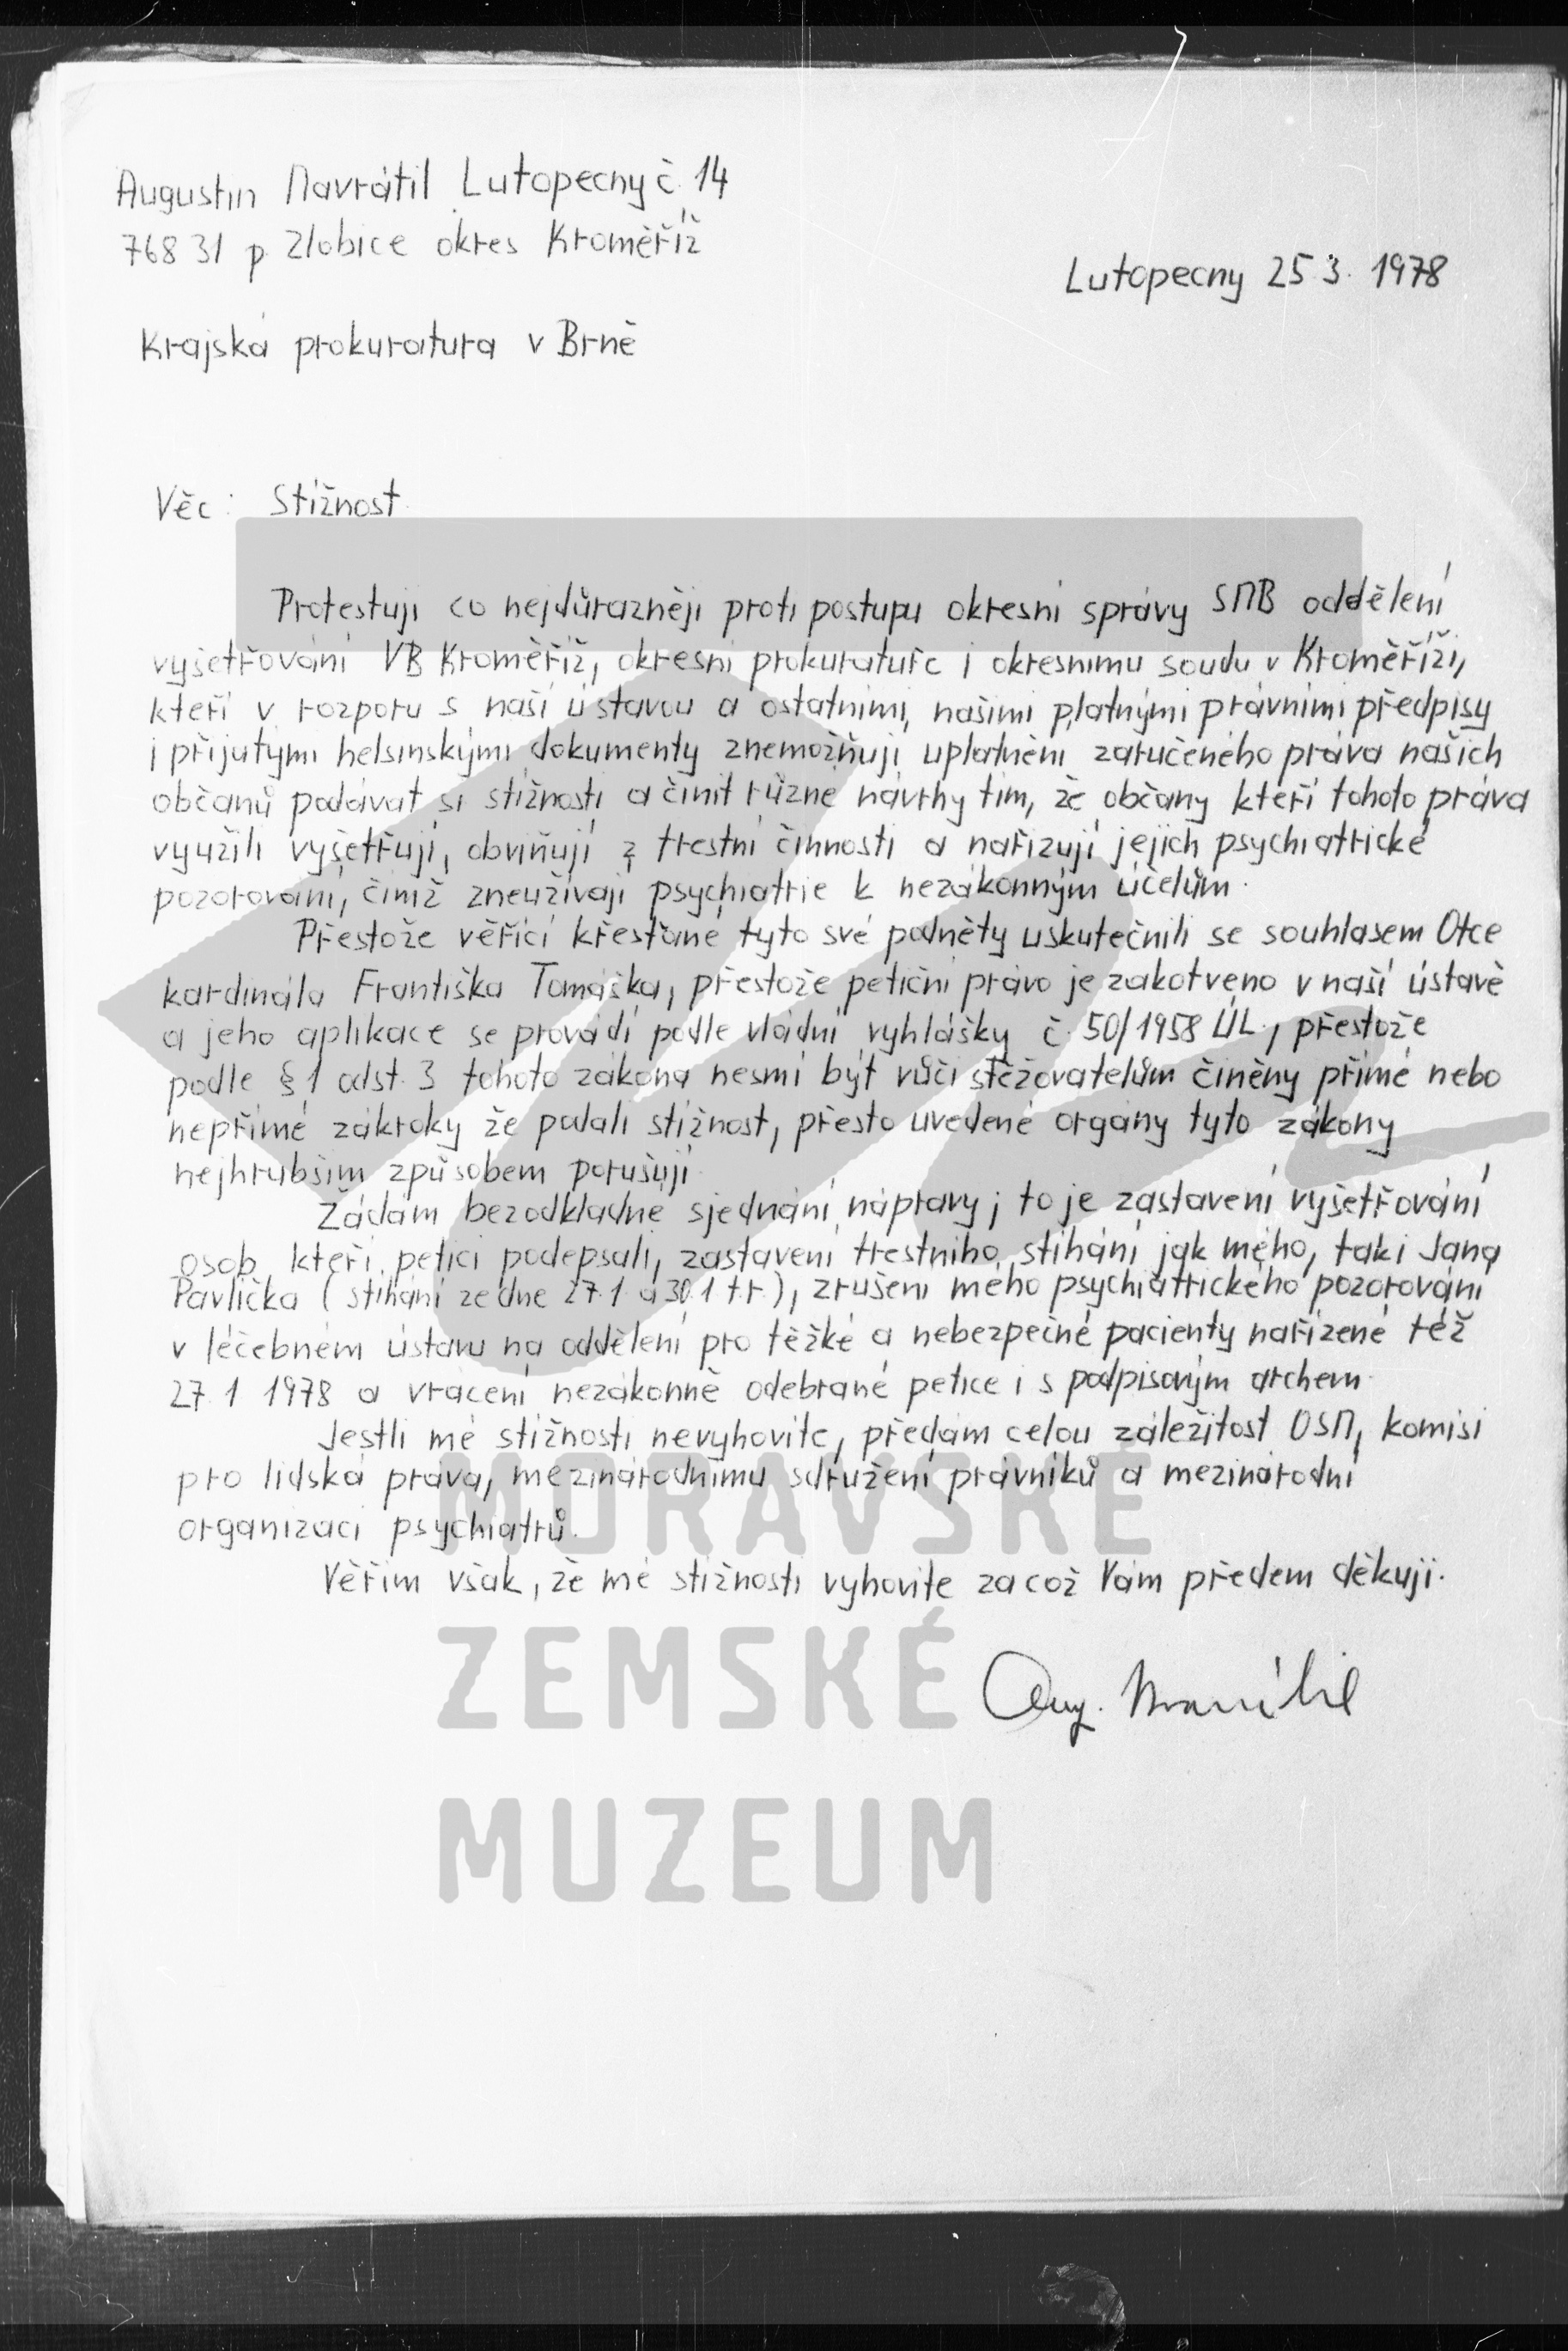 Augustin Navrátil Lutopecny č. 14
768 31 p. Zlobice okres Kroměříž
Lutopecny 25.3. 1978
Krajská prokuratura v Brně
Věc: Stížnost.
Protestuji co nejdůrazněji proti postupu okresní správy SNB oddělení
vyšetřování VB Kroměříž, okresní prokuratuře i okresnímu soudu v Kroměříži,
kteří v rozporu s naší ústavou a ostatními, našimi platnými právními předpisy
i přijatými helsinskými dokumenty znemožňují uplatnění zaručeného práva našich
občanů podávat si stížnosti a činit různé návrhy tím, že občany kteří tohoto práva
využili vyšetřují, obviňují z trestní činnosti a nařizují jejich psychiatrické
pozorování, čímž zneužívají psychiatrie k nezákonným účelům.
Přestože věřící křesťané tyto své podněty uskutečnili se souhlasem Otce
kardinála Františka Tomáška, přestože petiční právo je zakotveno v naší ústavě
a jeho aplikace se provádí podle vládní vyhlášky č. 50/1958 ÚL., přestože
podle § 1 odst. 3 tohoto zákona nesmí být vůči stěžovatelům činěny přímé nebo
nepřímé zákroky že podali stížnost, přesto uvedené orgány tyto zákony
nejhrubším způsobem porušují.
Žádám bezodkladné sjednání nápravy; to je zastavení vyšetřování
osob kteří petici podepsali, zastavení trestního stíhání jak mého, tak i Jana
Pavlíčka (stíhání ze dne 27.1. a 30.1 t.r.), zrušení mého psychiatrického pozorování
v léčebném ústavu na oddělení pro těžké a nebezpečné pacienty nařízené též
27.1 1978 a vrácení nezákonně odebrané petice i s podpisovým archem.
Jestli mé stížnosti nevyhovíte, předám celou záležitost OSN, komisi
pro lidská práva, mezinárodnímu sdružení právníků a mezinárodní
organizaci psychiatrů.
Věřím však, že mé stížnosti vyhovíte začož Vám předem děkuji.
Aug. Navrátil
MORAVSKÉ
ZEMSKÉ
MUZEUM